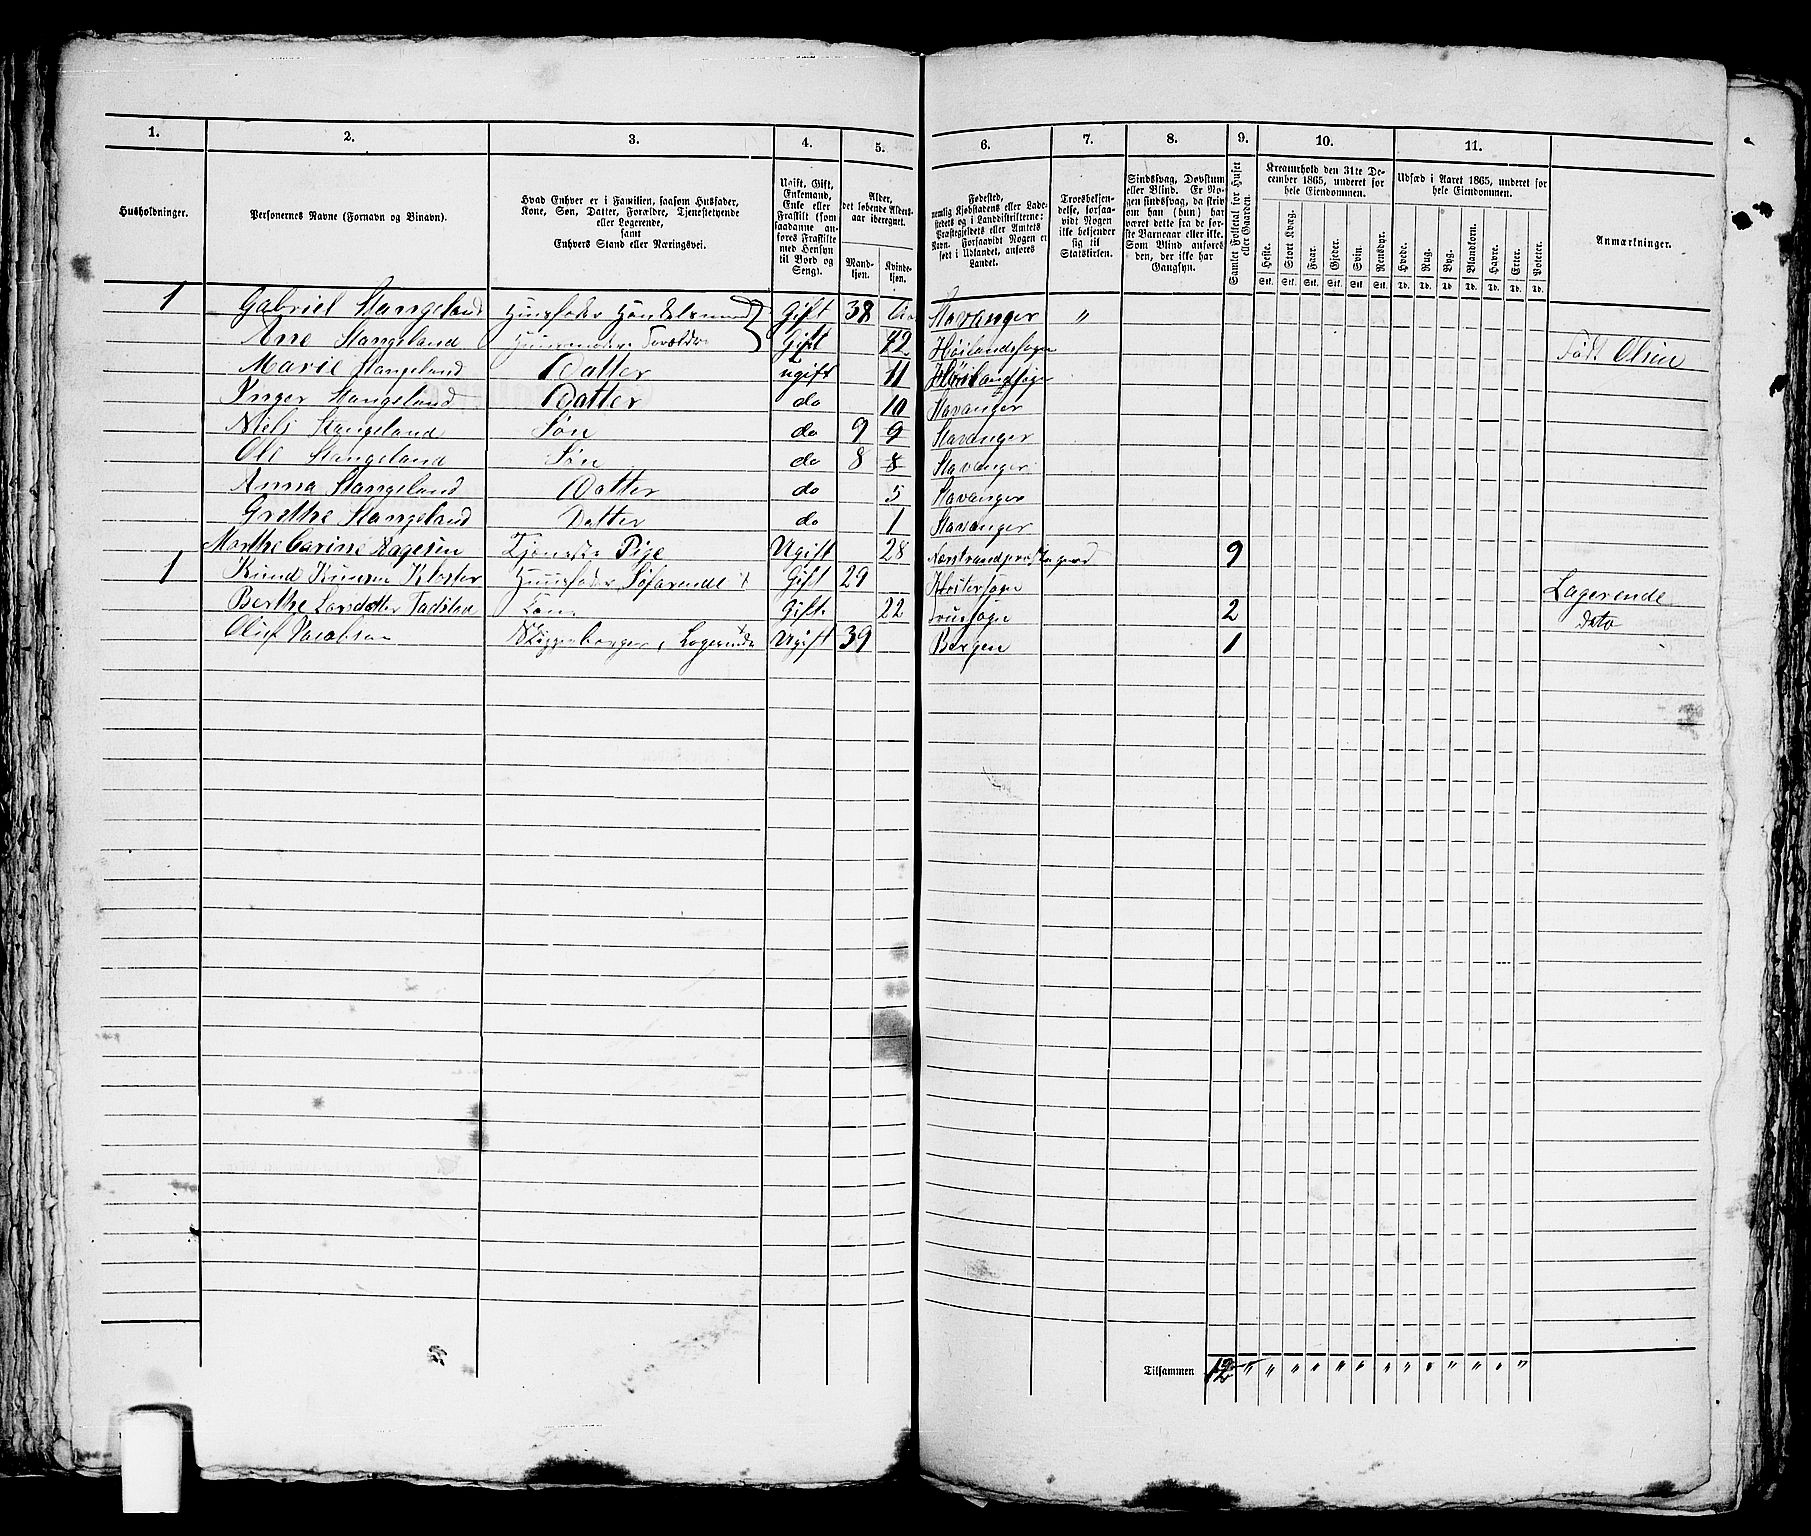 1. 2. 3. 4. 5. 6. 7. 8. 9. 10. 11.
Husholdninger.
Personernes Navne (Fornavn og Binavn).
Hvad Enhver er i Familien, saasom Husfader,
Kone, Søn, Datter, Forældre, Tjenestetyende
eller Logerende,
samt
Enhvers Stand eller Næringsvei.
Ugift, Gift,
Enkemand,
Enke eller
Fraskilt (som
saadanne an-
føres Fraskilte
med Hensyn
til Bord og
Seng).
Alder,
det løbende Alders-
aar iberegnet.
Mand-
kjøn.
Kvinde-
kjøn.
Fødested,
nemlig Kjøbstadens eller Lade-
stedets og i Landdistrikterne:
Præstegjeldets eller Amtets
Navn. Forsaavidt Nogen er
født i Udlandet, anføres
Landet.
Troesbekjen-
delse, forsaa-
vidt Nogen
ikke bekjender
sig til
Statskirken.
Sindssvag, Døvstum
eller Blind. Er No-
gen sindssvag, da skriv
om han (hun) har
været dette fra de før-
ste Barneaar eller ikke.
Som Blind anføres
den, der ikke har
Gangsyn.
Samlet Folketal for Huset
eller Gaarden.
Kreaturhold den 31te De-
cember 1865, underet for
hele Eiendommen.
Heste. Stort Kvæg. Faar. Gjeder. Svin. Rensdyr.
Stk. Stk. Stk. Stk. Stk. Stk.
Udsæd i Aaret 1865, underet for
hele Eiendommen.
Hvede. Rug. Byg. Blandkorn. Havre. Erter. Poteter.
Td. Td. Td. Td. Td. Td. Td.
Anmærkninger.
1 Gabriel Stangeland Huusfader Handelsmand Gift 38 Stavanger "
Ane Stangeland Gift 42 Høilandsogn Født Olsen
Marie Stangeland Datter ugift 11
Inger Stangeland Datter do 10 Stavanger
Niels Stangeland Søn do 9 9 Stavanger
Ole Stangeland Søn do 8 8 Stavanger
Anna Stangeland Datter do 5 Stavanger
Grethe Stangeland Datter do 1 Stavanger
Marthe Carine Aagesen Tjeneste Pige Ugift 28 9
1 Knud Knusen Kloster Huusfader Søfarende Gift 29 Klostersogn Logerende
Berthe Larsdatter Kone Gift 22 2 dito
Oluf Jacobsen Logerende Ugift 39 Bergen 1
Tilsammen 12 " " " " " " " " " " " " "